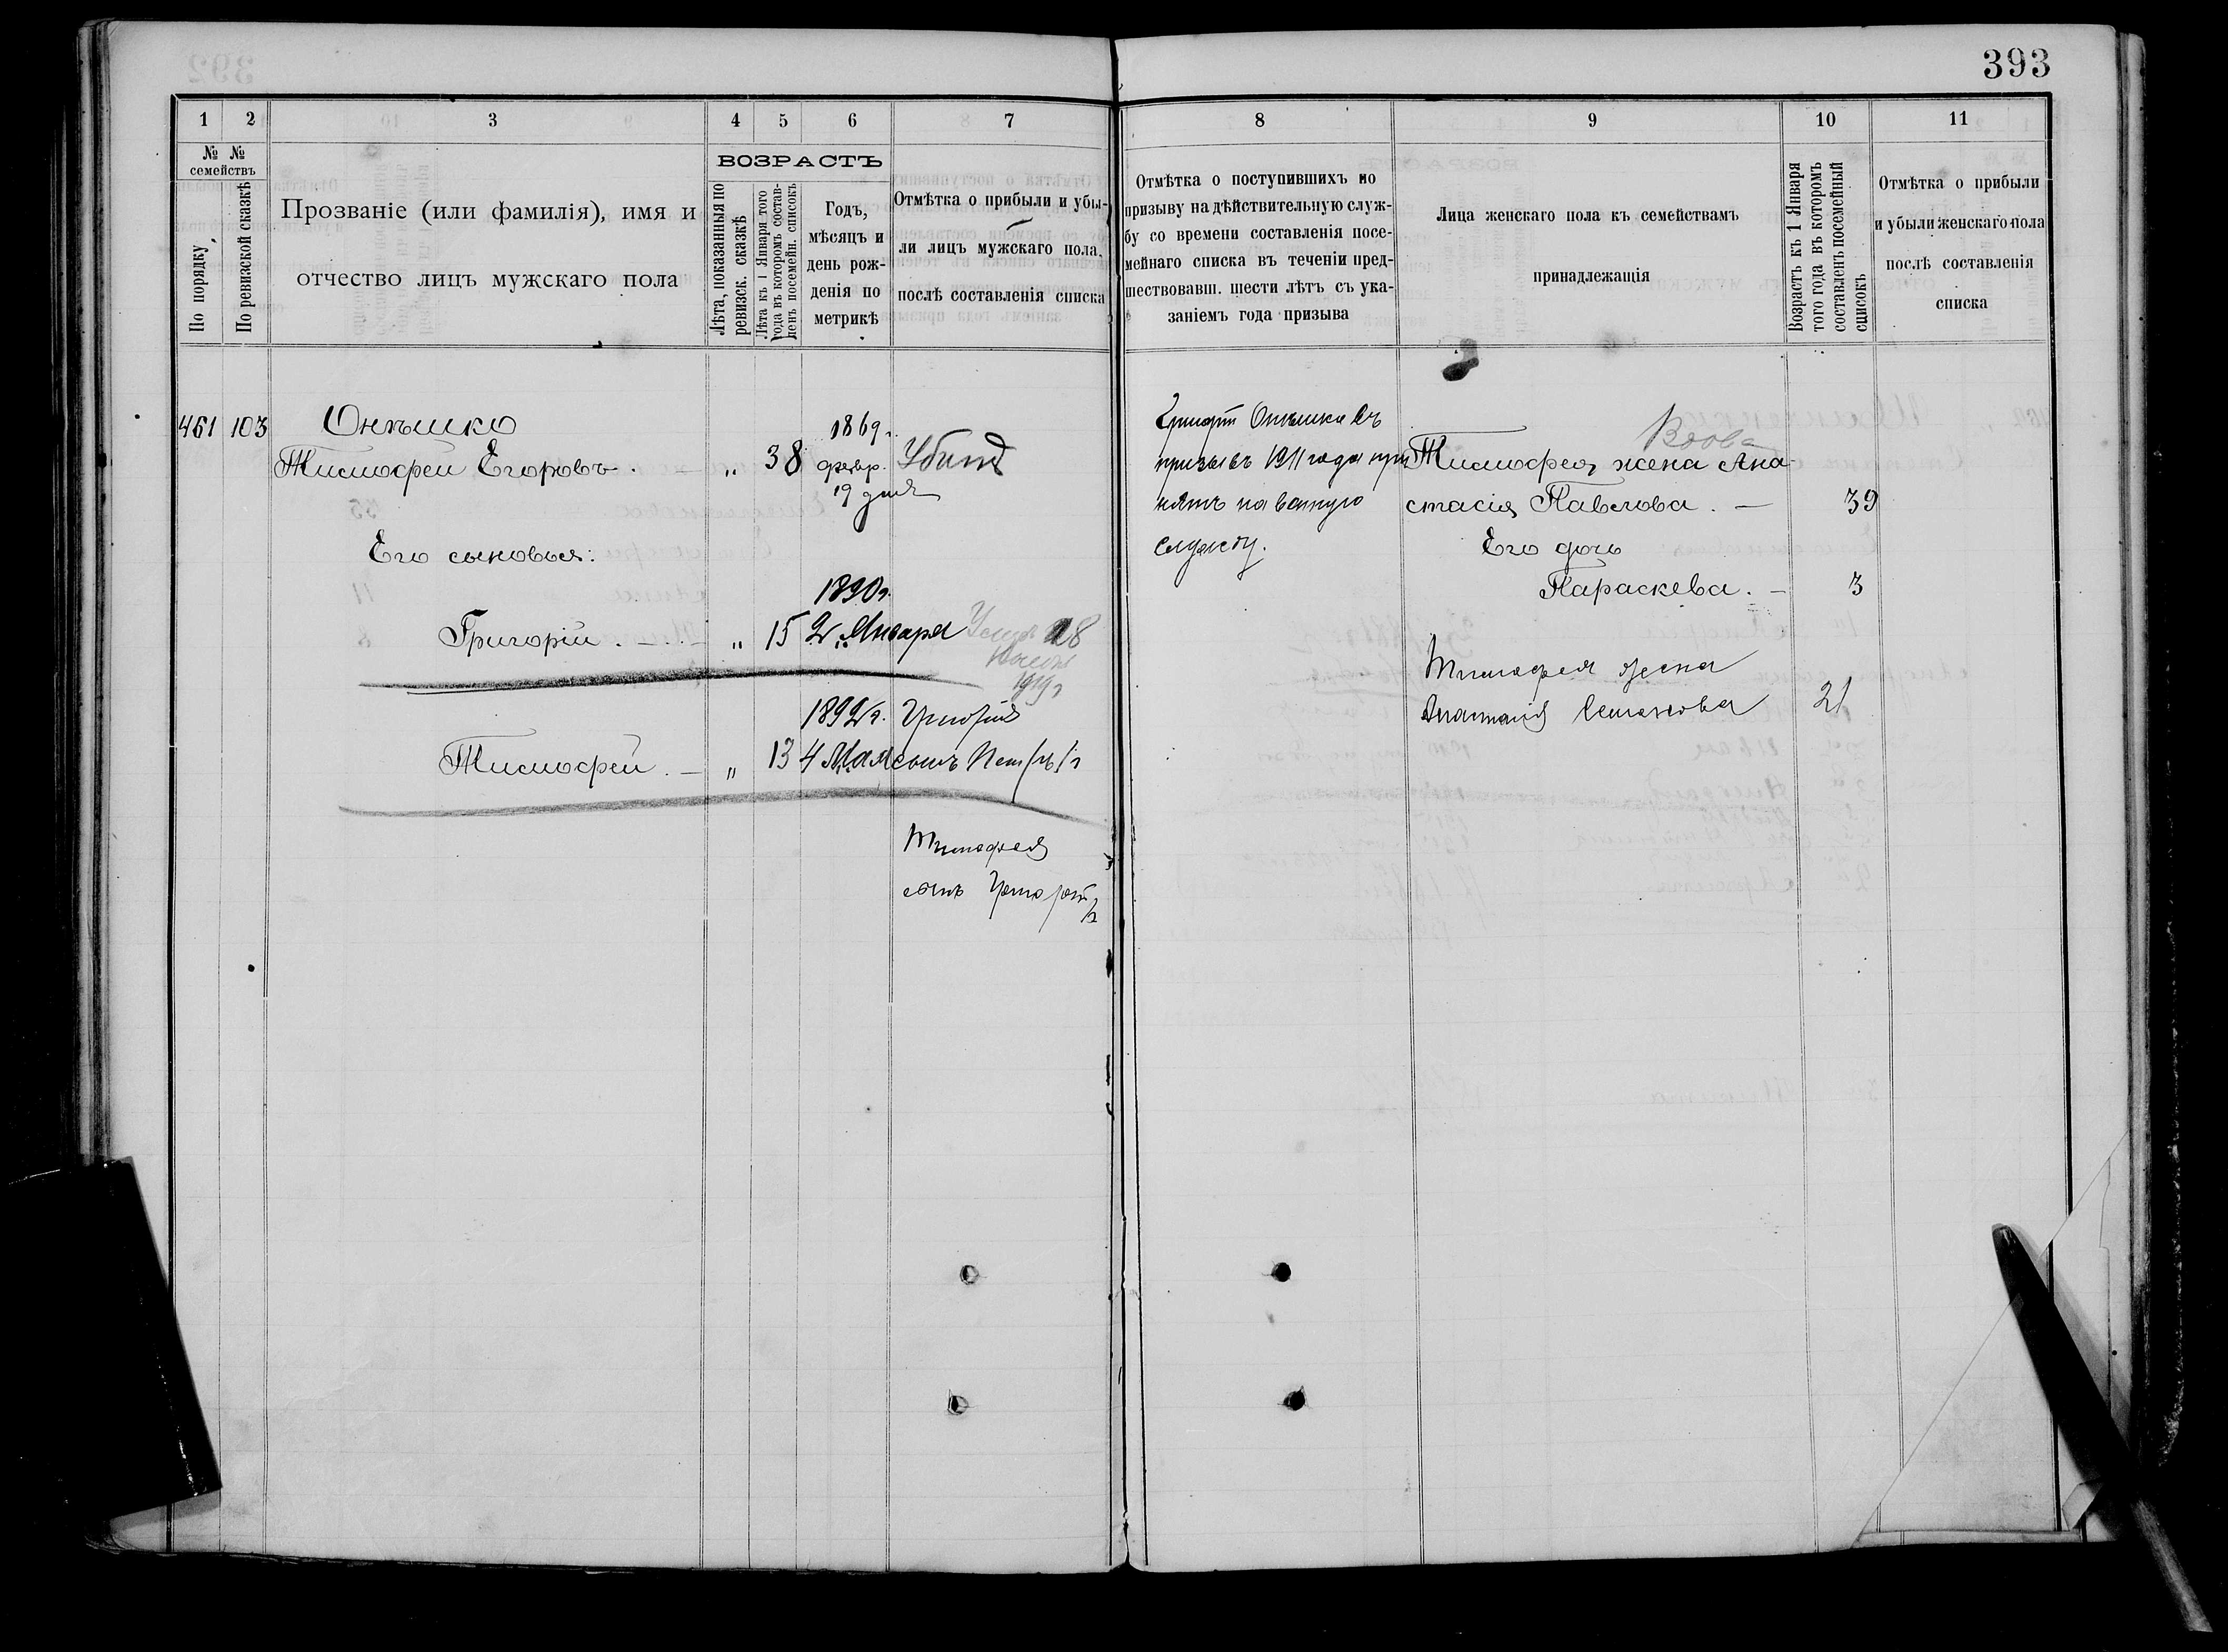 393
1 2 3 4 5 6 7
№ №
семействъ
По порядку
По ревизской сказкѣ
Прозваніе (или фамилія), имя и
отчество лицъ мужскаго пола
ВОЗРАСТЪ
Лѣта, показанныя по
ревизск. сказкѣ
Лѣта къ 1 Января того
года въ которомъ состав-
ленъ посемейн. списокъ
Годъ,
мѣсяцъ и
день рож-
денія по
метрикѣ
Отмѣтка о прибыли и убы-
ли лицъ мужскаго пола,
послѣ составленія списка
461 103 Онѣшко
1869г.
Тимофей Егоровъ. — „ 38 февр. Убитъ
19 дня
Его сыновья:
1890г.
Григорій. — „ 15 2 Января 18
1919г
1892г. Григорія
Тимофей. — „ 13 4 Мая сынъ
Тимофея
сынъ
8 9 10 11
Отмѣтка о поступившихъ по
призыву на дѣйствительную служ-
бу со времени составленія посе-
мейнаго списка въ теченіи пред-
шествовавш. шести лѣтъ съ ука-
заніемъ года призыва
Лица женскаго пола къ семействамъ
принадлежащія
Возрастъ къ 1 Января
того года въ которомъ
составленъ посемейный
списокъ
Отмѣтка о прибыли
и убыли женскаго пола
послѣ составленія
списка
Григорій Онѣшко въ
призывъ 1911 года при
нятъ на военную
службу.
Вдова
Тимофея жена Ана-
стасія Павлова. — 39
Его дочь
Параскева. — 3
Тимофея жена
Анастасія Семенова 21